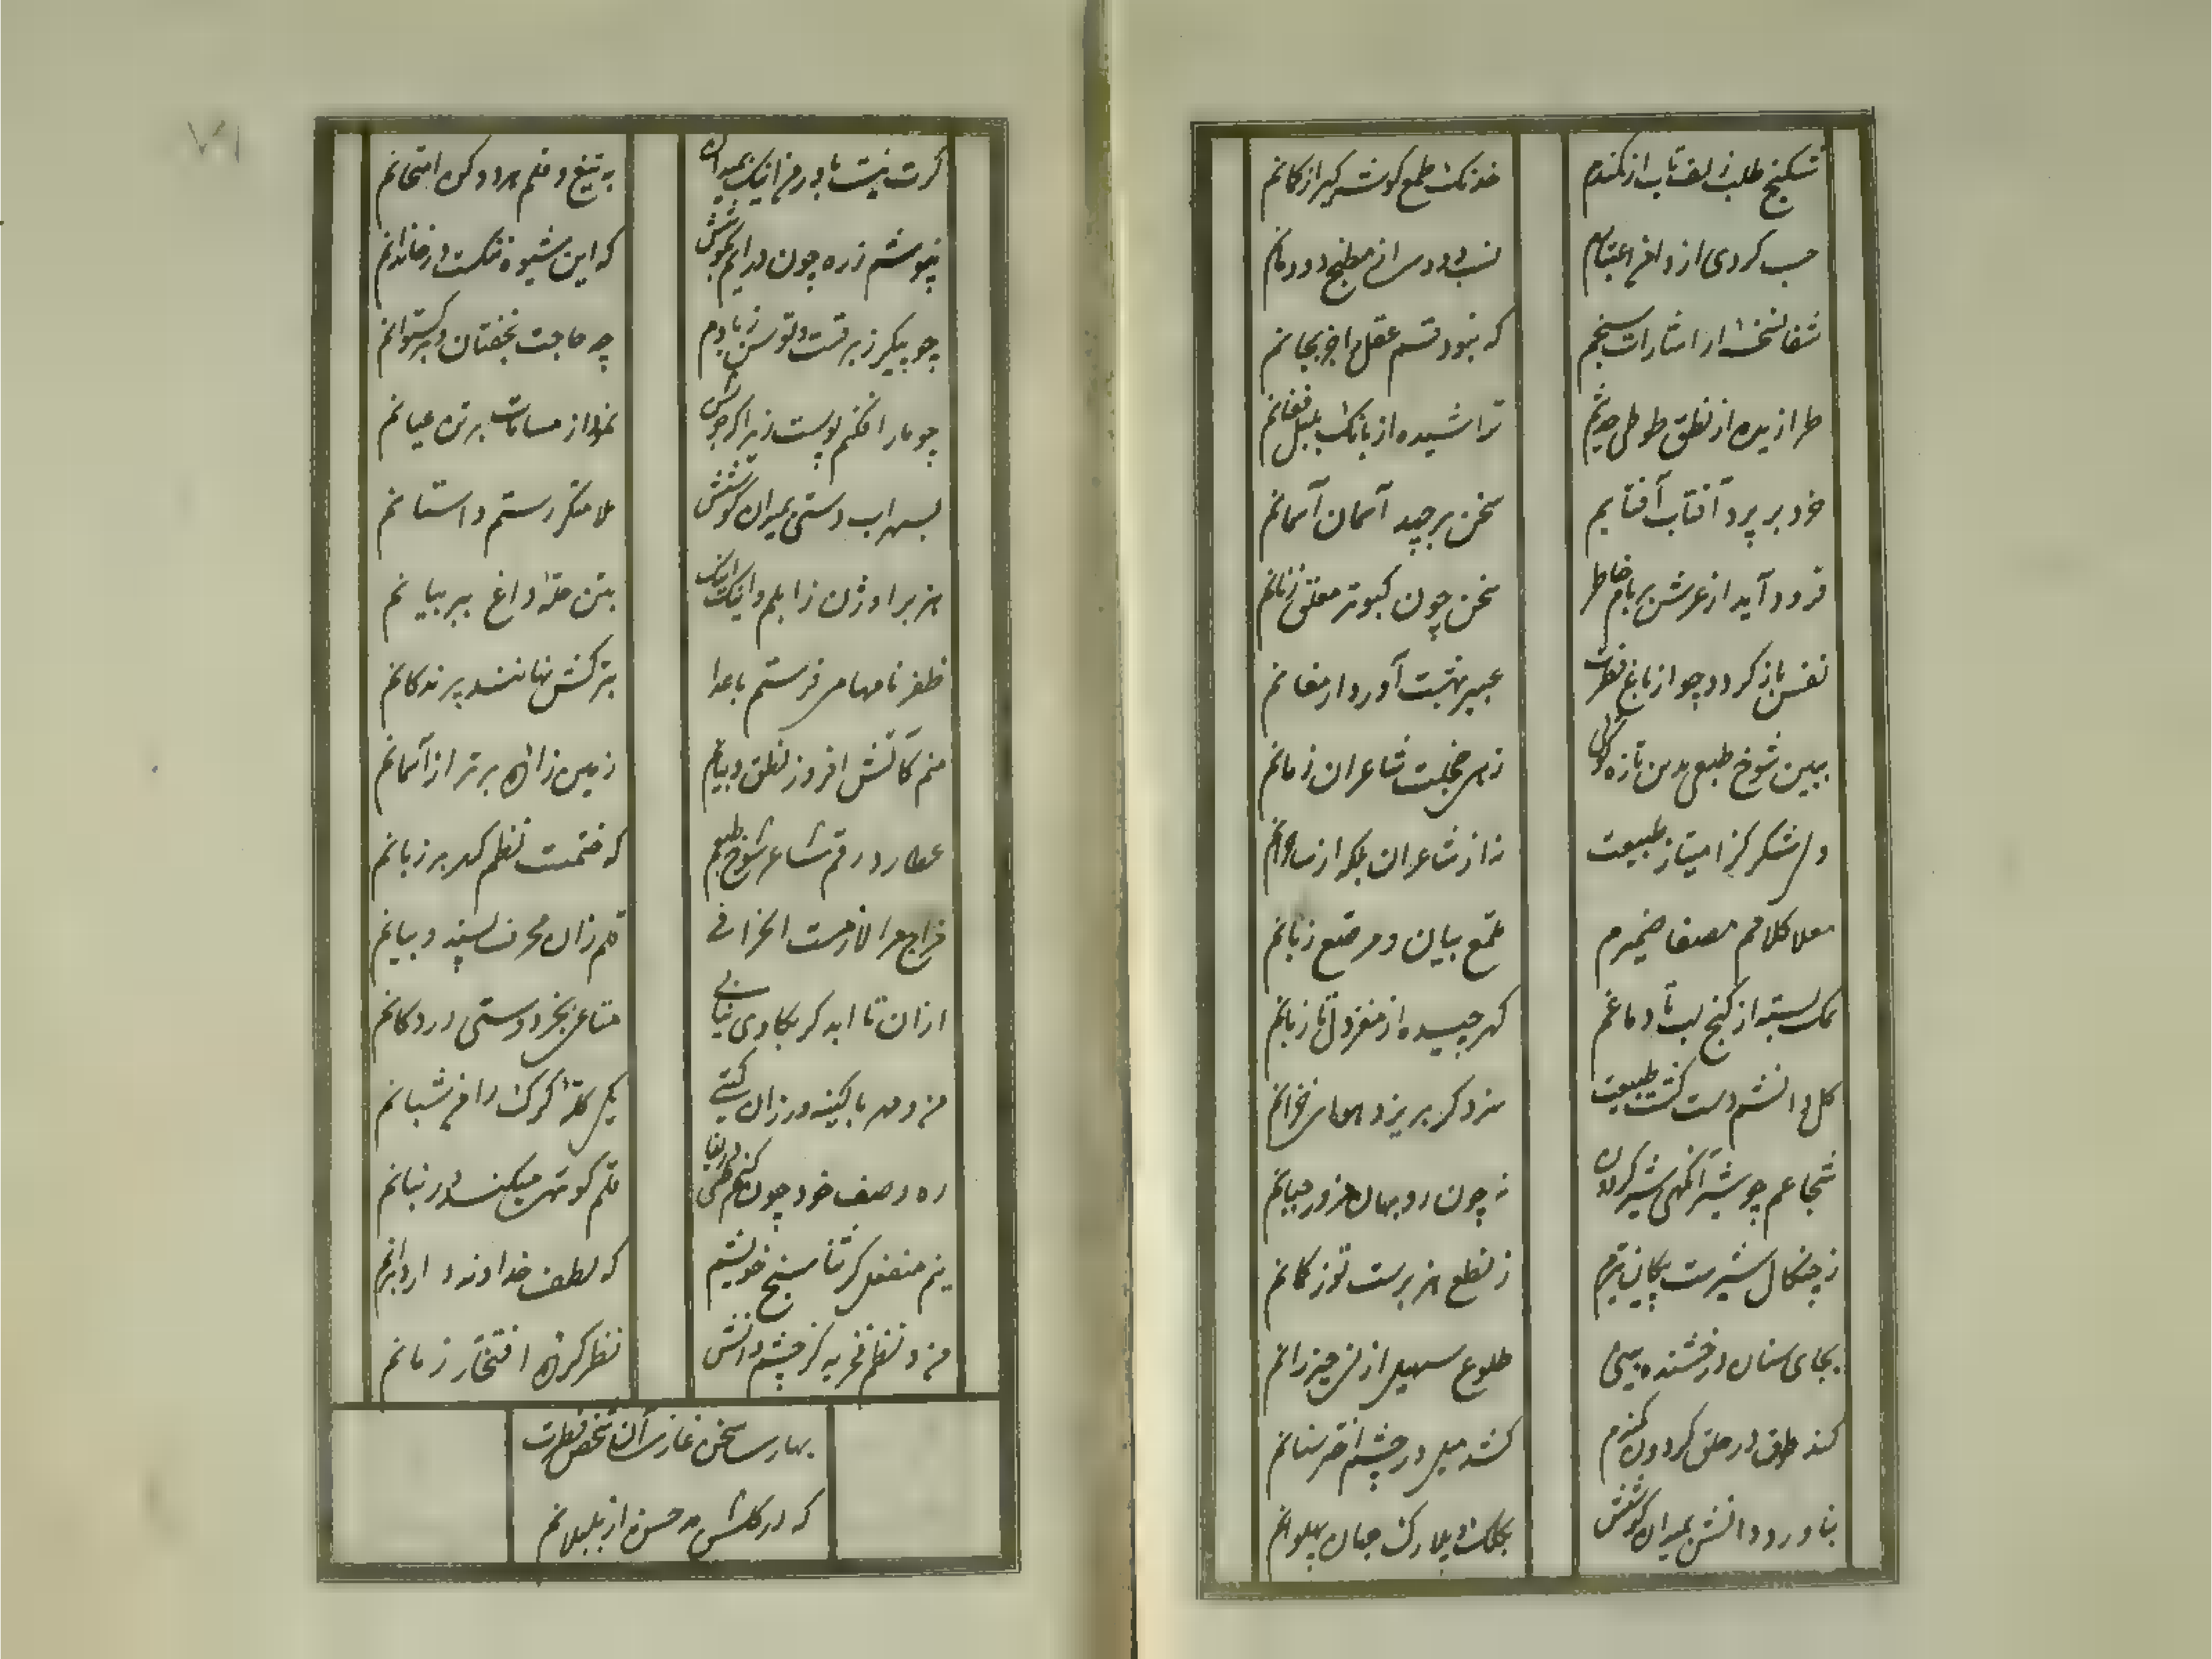 شکنج طلب زلف تاب از کمندم
خدنک طمع کوشه کیر از کمانم
حسب کردی از
نسب دود مطبخ دودمانم
شفا نسخهٔ از اشارات سنجم
که نبود قسم عقل
طرازیده از نطق طوطی حدیثم
تراشیده از بانک بلبل فغانم
خرد بر پرد آفتاب آفتابم
سخن بر جهد آسمان آسمانم
فرود آید از عرش بر بام خاطر
سخن چون کبوتر معلق زنانم
نفس باز کردد چو از باغ فطرت
عبیر بهشت آورد ارمغانم
ببین شوخ طبعی من تازه
زهی خجلت شاعران زمانم
ولی شکر کز امتیاز طبیعت
نه از شاعران بلکه از ساحرانم
معلا کلامم مصفا ضمیرم
ملمع بیان و مرصع زبانم
نمک بسته از کنج لب تا دماغم
کهر چیده از مغز دل تا زبانم
کل دانشم دست کشت طبیعت
سزد کر بریزد
شجاعم چو شیر آکهی شیر کردون
نه چون روبهان
ز چنکال شیرست پیکان تیرم
ز نطع هزبرست توز کمانم
بجای سنان درخشنده بینی
طلوع سهیل از
کند طوق در حلق کردون کمندم
کشد میل در چشم اختر سنانم
بناورد دانش بمیدان کوشش
بکلک و بلارک جهان پهلوانم
کرت نیست باور من اینک بمیدان
به تیغ و قلم هر دو کن امتحانم
نپوشم زره چون درایم بکوشش
که این شیوه ننکست در خاندانم
چو پیکر ز برقست و توسن ز بادم
چه حاجت بخفتان و برکستوانم
چو مار افکنم پوست زیرا که جوشن
نمود از مسامات برتن عیانم
بسهراب دستی بمیدان کوشش
ملامتکر رستم داستانم
هزبر اوژن زابلم و اینک اینک
بتن حلهٔ داغ ببر بیانم
ظفر نامها می فرستم باعدا
بترکش نهانند پرندکانم
منم کآتش افروز نطق و بیانم
زمین زادهٔ برتر از آسمانم
عطارد رقم شاعر شوخ طبعم
که ختمست نظم کهر بر زبانم
مزاج مرا لازمست انحرافی
قلم زان محرف پسندد بیانم
ازان تا ابد کر بکاوی نیابی
متاعی بجز دوستی در دکانم
من و مهر با کینه ورزان کیتی
یکی کلهٔ کرک را من شبانم
ره وصف خود چون کنم طی دریغا
قلم کوتهی میکند در بنانم
نیم منفعل کر ثنا سنج خویشم
که لطف خداوند دارد بر آنم
من و نظم فخریه کز چشم دانش
نظر کردهٔ افتخار زمانم
بهار سخن غازهٔ شخص فطرت
که در کلشن مدحش از بلبلانم